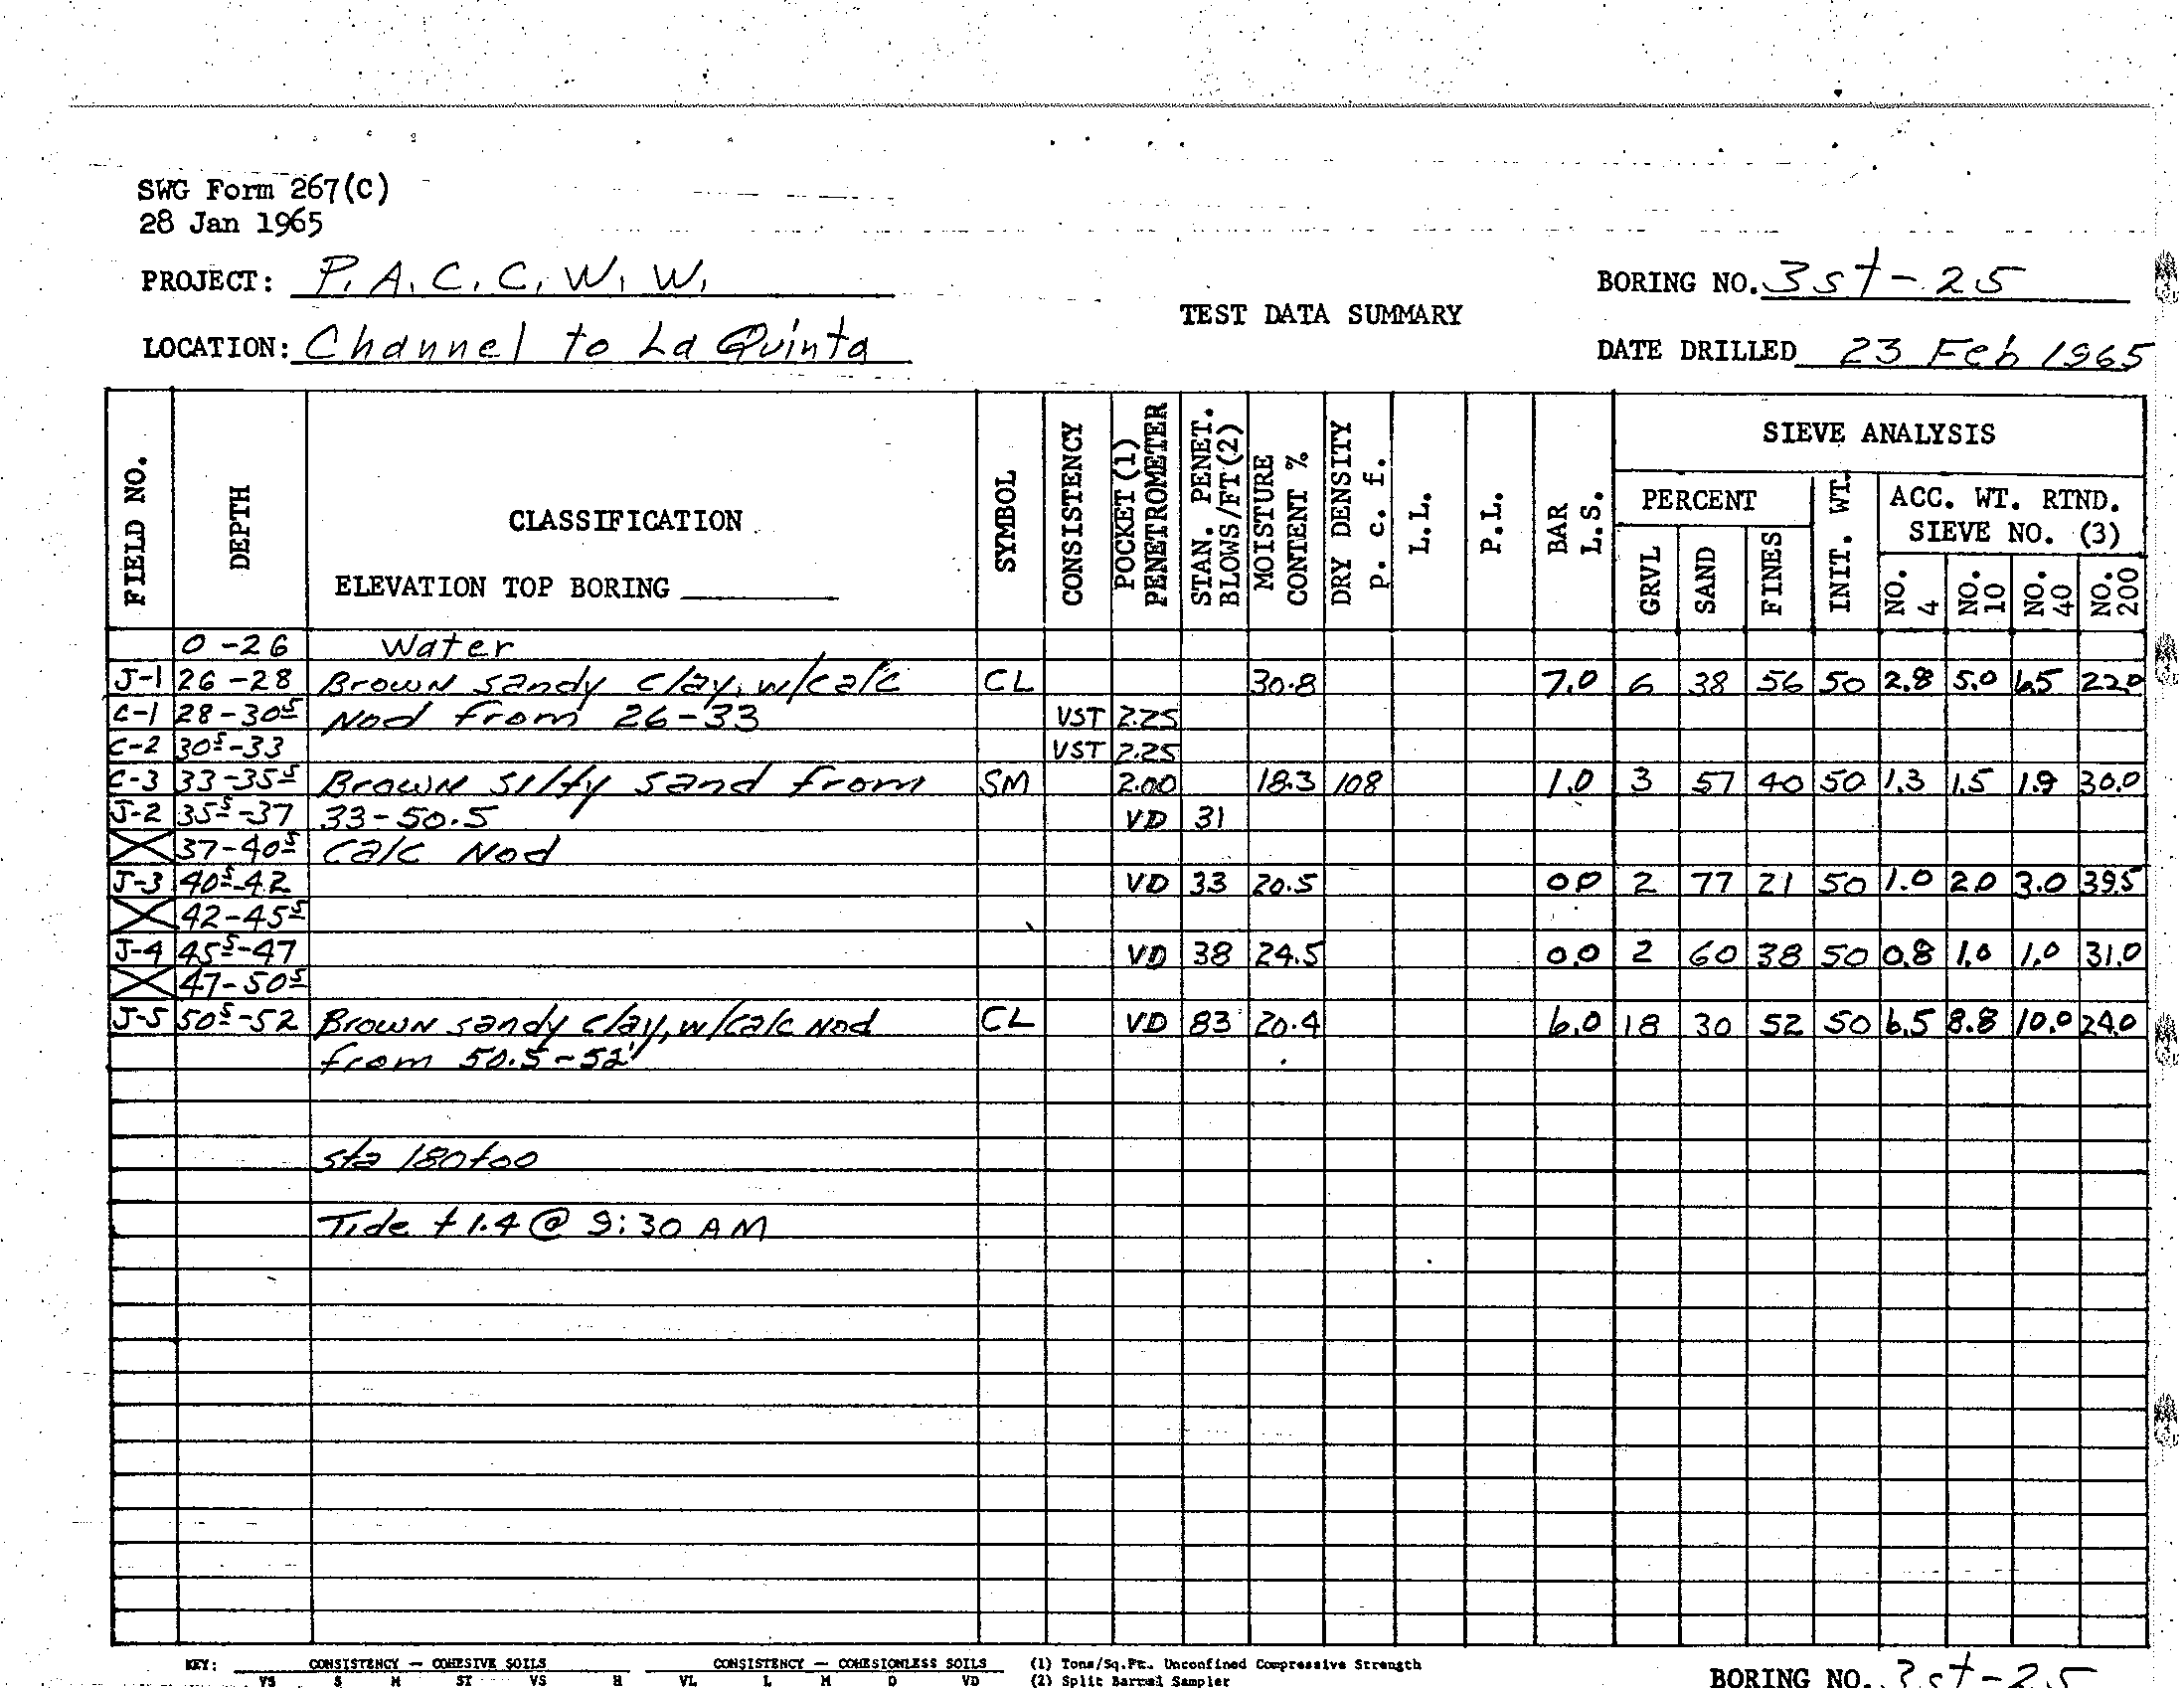 SWG Form 267(C)
28 Jan 1965
PROJECT: P.A.C.C.W.W.
BORING NO. 3st-25
TEST DATA SUMMARY
LOCATION: Channel to La Quinta
DATE DRILLED 23 Feb 1965
FIELD NO. DEPTH CLASSIFICATION SYMBOL CONSISTENCY POCKET (1) PENETROMETER STAN. PENET. BLOWS/FT (2) MOISTURE CONTENT % DRY DENSITY p. c. f. L.L. P.L. BAR L.S. SIEVE ANALYSIS
PERCENT INIT. WT. ACC. WT. RTND. SIEVE NO. (3)
ELEVATION TOP BORING
GRVL SAND FINES NO. 4 NO. 10 NO. 40 NO. 200
0-26 Water
J-1 26-28 Brown sandy clay, w/calc CL 30.8 7.0 6 38 56 50 2.8 5.0 6.5 22.0
C-1 28-30⁵ Nod from 26-33 VST 2.25
C-2 30⁵-33 VST 2.25
C-3 33-35⁵ Brown silty sand from SM 2.00 18.3 108 1.0 3 57 40 50 1.3 1.5 1.9 30.0
J-2 35⁵-37 33-50.5 VD 31
37-40⁵ Calc Nod
J-3 40⁵-42 VD 33 20.5 0.0 2 77 21 50 1.0 2.0 3.0 39.5
42-45⁵
J-4 45⁵-47 VD 38 24.5 0.0 2 60 38 50 0.8 1.0 1.0 31.0
47-50⁵
J-5 50⁵-52 Brown sandy clay, w/calc Nod CL VD 83 20.4 6.0 18 30 52 50 6.5 8.8 10.0 24.0
from 50.5-52'
Sta 180+00
Tide +1.4 @ 9:30 AM
KEY: CONSISTENCY — COHESIVE SOILS CONSISTENCY — COHESIONLESS SOILS (1) Tons/Sq.Ft. Unconfined Compressive Strength
VS S M ST VS H VL L M D VD (2) Split Barrel Sampler
BORING NO. 3st-25